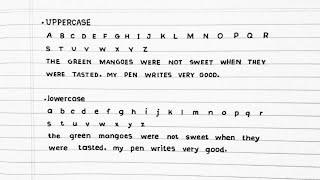 • UPPERCASE
A B C D E F G H I J K L M N O P Q R
S T U V W X Y Z
THE GREEN MANGOES WERE NOT SWEET WHEN THEY
WERE TASTED. MY PEN WRITES VERY GOOD.
• lowercase
a b c d e f g h i j k l m n o p q r
s t u v w x y z
the green mangoes were not sweet when they
were tasted. my pen writes very good.